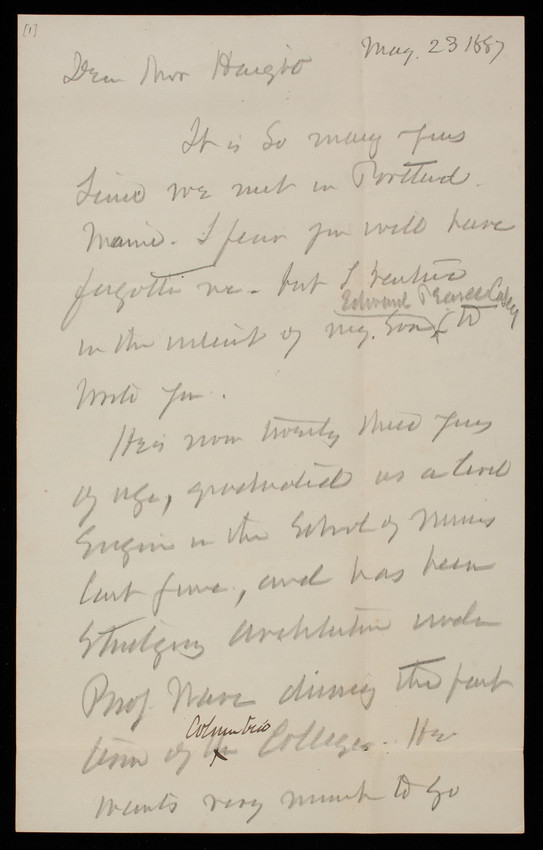 [1]
May 23 1887
Dear Mr Haight
It is so many years
since we met in Portland
Maine. I fear you will have
forgotten me - but I venture
Edward Pearce Casey
in the interest of my son, to
write you.
He is now twenty three years
of age, graduated as a Civil
Engineer in the School of Mines
last June, and has been
studying architecture under
Prof. Ware during the past
Columbia
term of the College. He
wants very much to go